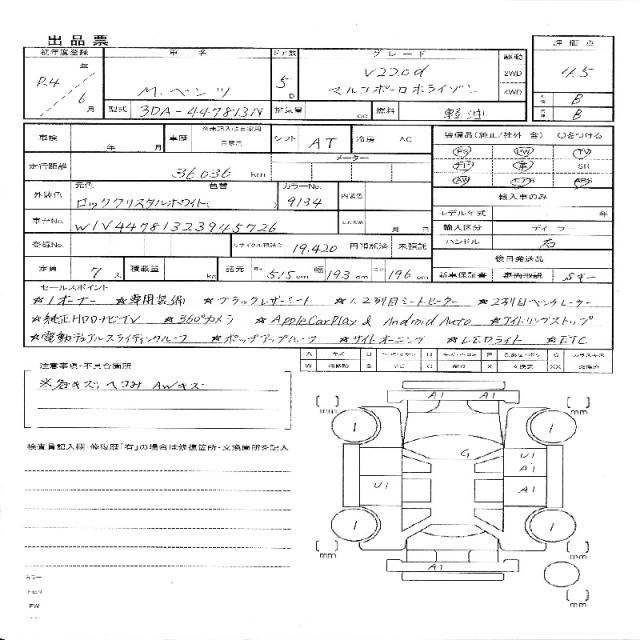 出品票
初年度登録 車名 ドア数 グレード 駆動 評価点
R.4 年 6 月 M.ベンツ 5 D V220d 2WD 4WD 4.5
マルコポーロホライゾン B
型式 3DA-447813N 排気量 cc 燃料 軽油 B
車検 年 月 車歴 シフト AT 冷房 AC 装備品(純正/社外 含) ○をつける
PS PW TV
走行距離 36,036 km メーター SR
AW ABS
外装色 元色 色替 カラーNo. 内装色 輸入車のみ
ロッククリスタルホワイト 9134 モデル年式 年
車台No. W1V44781323945726 月 日 輸入区分 ディーラー
登録No. リサイクル預託金 19,420 円 預託済 未預託 ハンドル 右
後日発送品
定員 7 人 積載量 kg 諸元 長さ 515 cm 幅 193 cm 高さ 196 cm 新車保証書 車両取説 Sキー
セールスポイント
☆1オーナー ☆専用装備 ☆ブラックレザーシート ☆1.2列目シートヒーター ☆2列目ベンチレーター
☆純正HDDナビTV ☆360°カメラ ☆AppleCarPlay & Android Auto ☆アイドリングストップ
☆電動デュアルスライディングルーフ ☆ポップアップルーフ ☆サイドオーニング ☆LEDライト ☆ETC
注意事項・不具合箇所
※各キズ,ヘコみ AWキズ
検査員記入欄・修復歴「有」の場合は修復箇所・交換箇所を記入
A1 A1
1 1
G U1
A1
U1 A1
1 1
A1 A1
mm mm
mm mm
mm